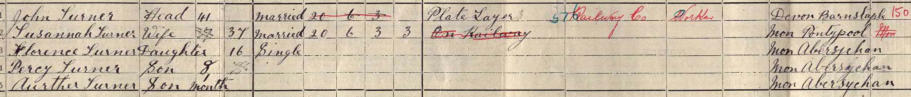 John Turner Head 41 married 20 6 3 Plate Layer Railway Co Worker Devon Barnstaple 150
Susannah Turner Wife 37 married 20 6 3 3 On Railway Mon Pontypool
Florence Turner Daughter 16 Single Mon Abersychan
Percy Turner Son 8 Mon Abersychan
Aurther Turner Son month Mon Abersychan